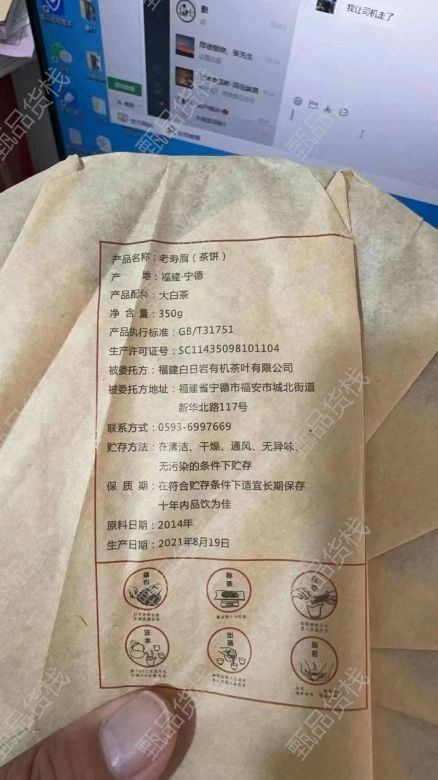 我让司机走了
产品名称：老寿眉（茶饼）
产 地：福建·宁德
产品配料：大白茶
净 含 量：350g
产品执行标准：GB/T31751
生产许可证号：SC11435098101104
被委托方：福建白日岩有机茶叶有限公司
被委托方地址：福建省宁德市福安市城北街道
新华北路117号
联系方式：0593-6997669
贮存方法：在清洁、干燥、通风、无异味、
无污染的条件下贮存
保 质 期：在符合贮存条件下适宜长期保存
十年内品饮为佳
原料日期：2014年
生产日期：2021年8月19日
称茶
注水
出汤
品茗
甄品货栈